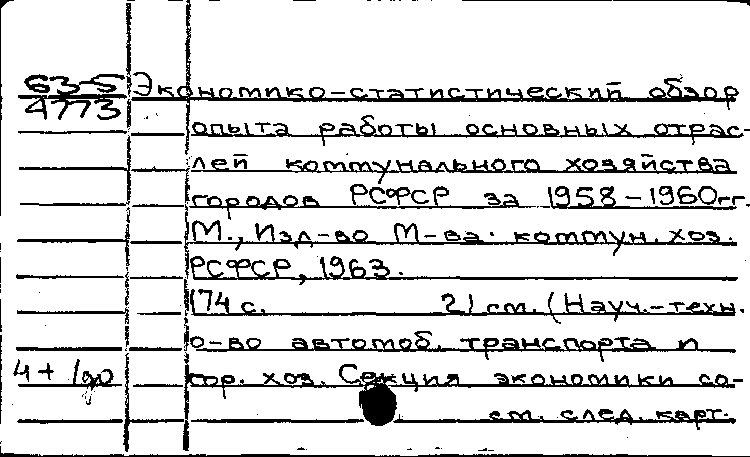 63-5 Экономико-статистический обзор
4773
опыта работы основных отрас-
лей коммунального хозяйства
городов РСФСР за 1958-1960гг.
М., Изд-во М-ва. коммун. хоз.
РСФСР, 1963.
174 с. 21 см. (Науч.-техн.
о-во автомоб. транспорта и
4+ гор. хоз. Секция экономики со-
см. след. карт.